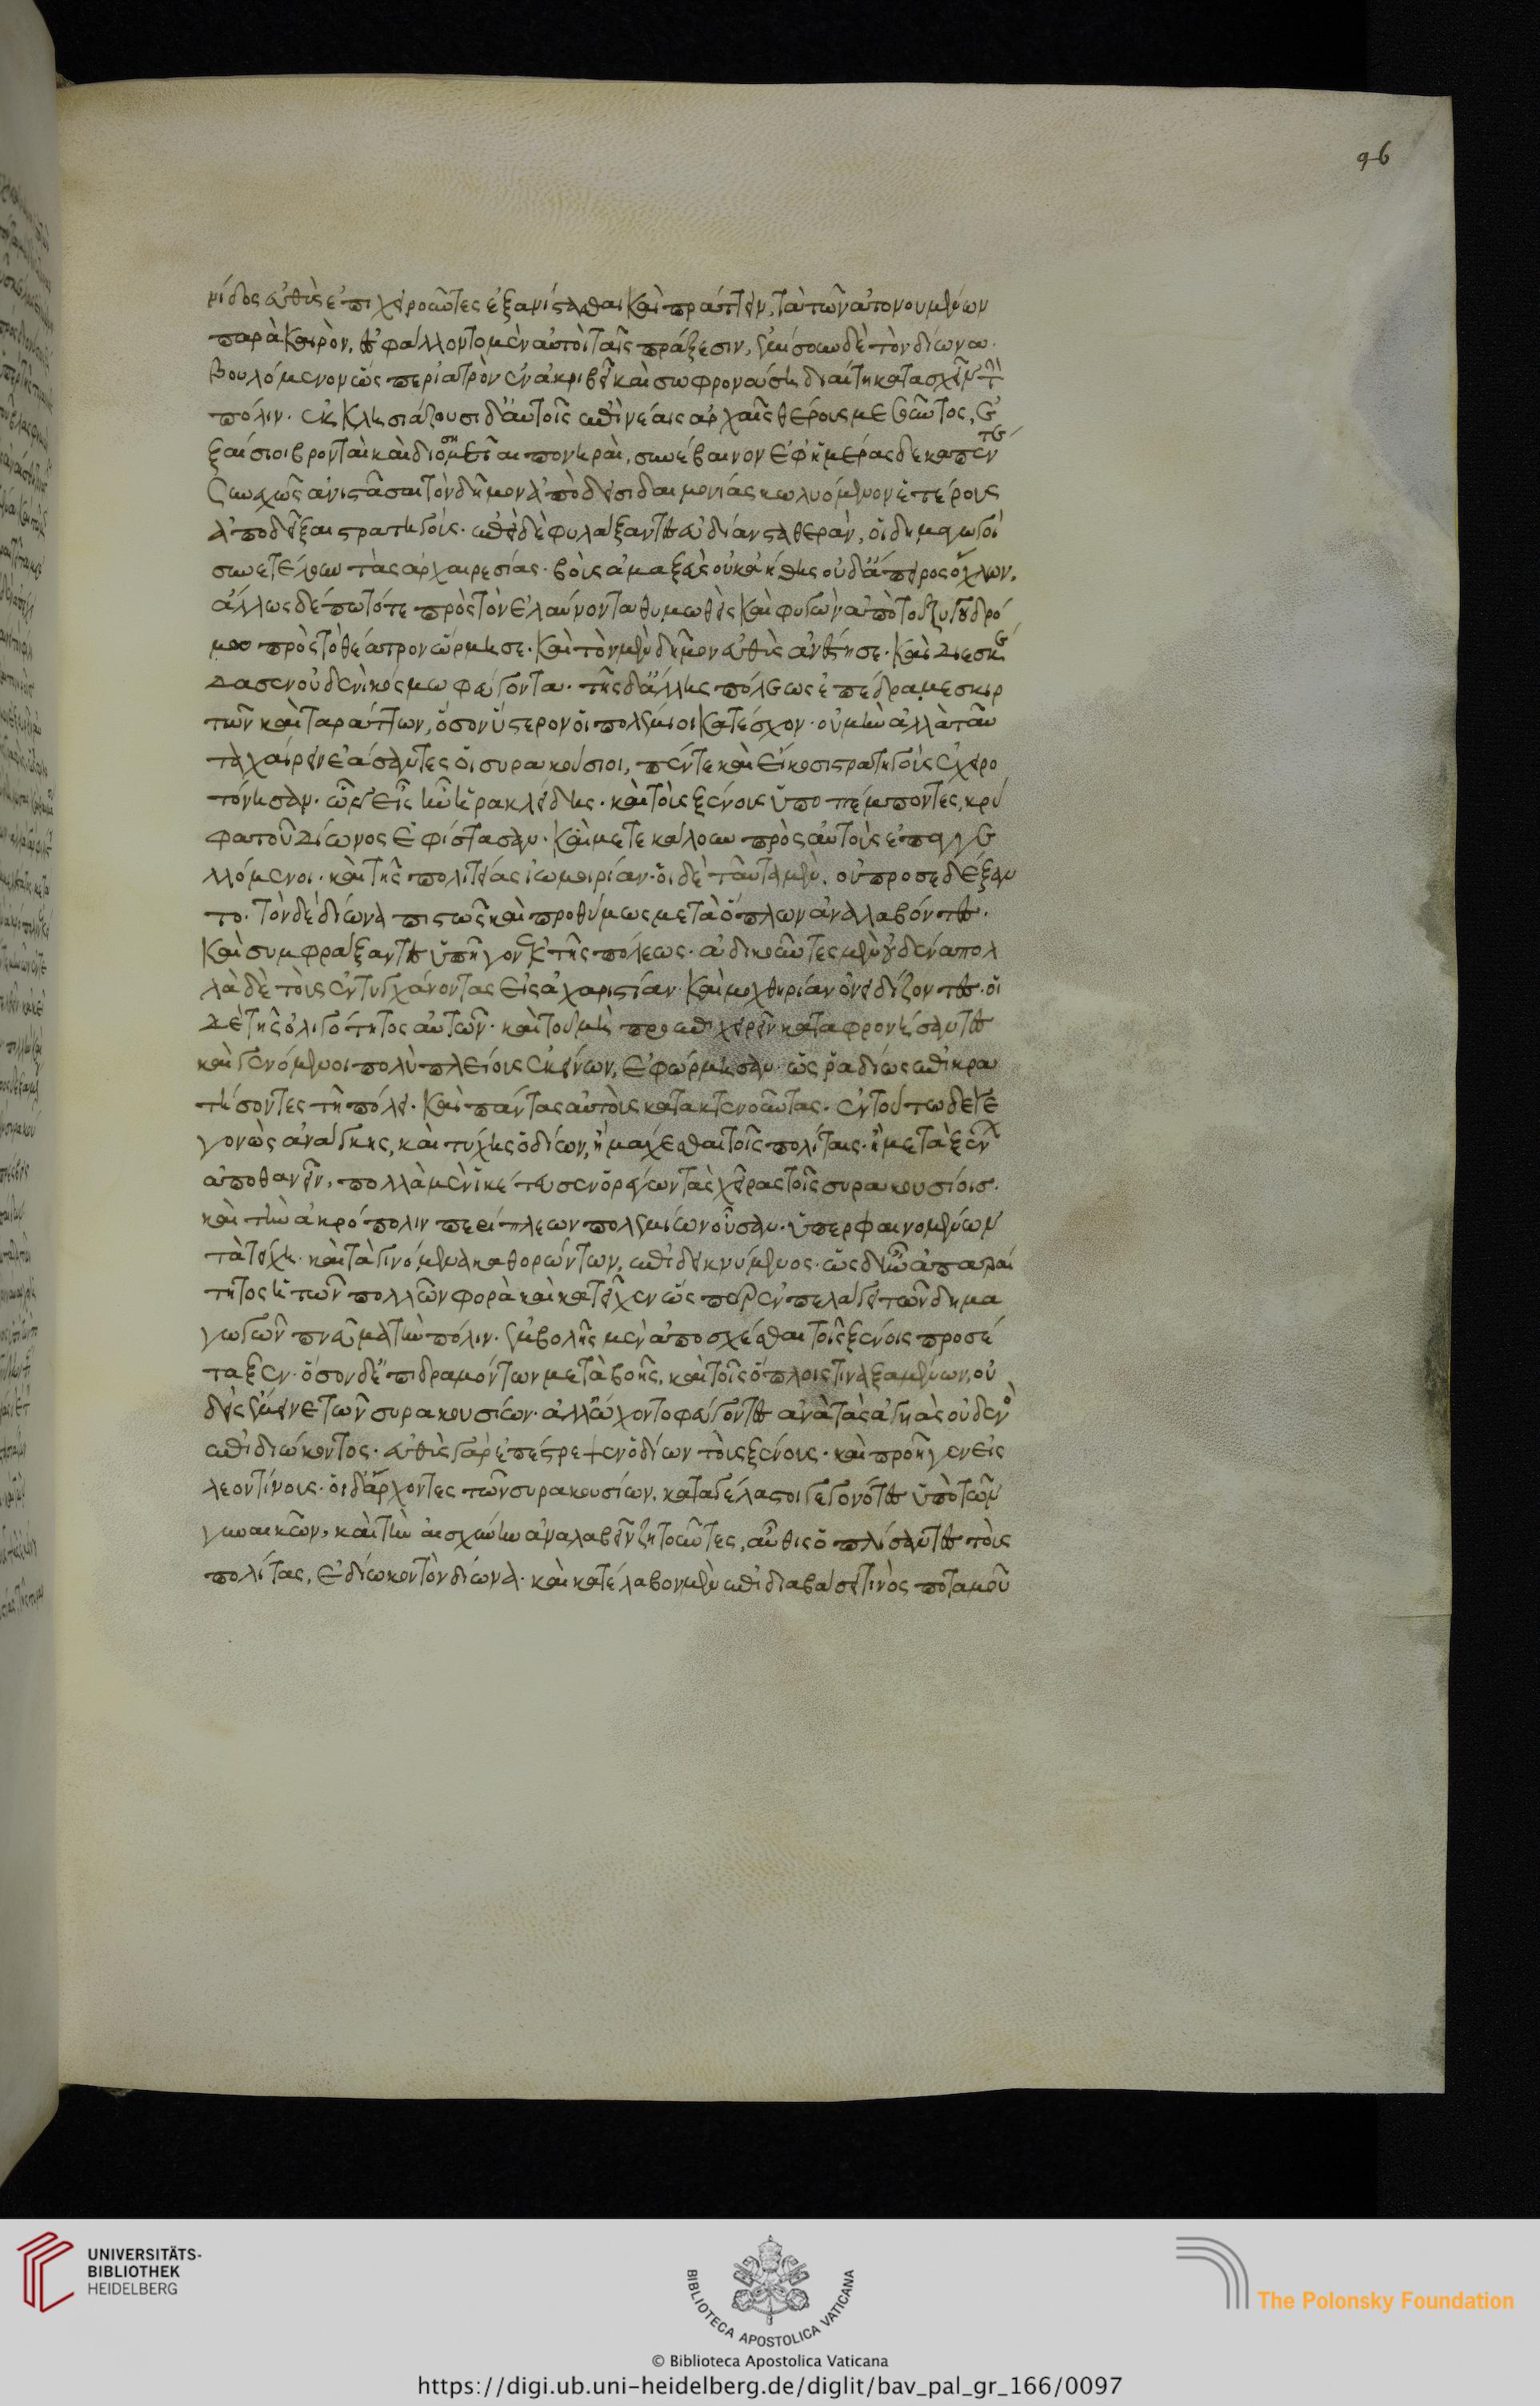 νίδος εὐθὺς ἐπιχειροῦντες ἐξανίστασθαι καὶ πράττειν, τὰ τῶν αὐτονουμένων
παρὰ καιρὸν, ἐσφάλλοντο μὲν αὐτοὶ ταῖς πράξεσιν, ἐμίσουν δὲ τὸν δίωνα.
βουλόμενον ὥσπερ ἰατρὸν ἐν ἀκριβεῖ καὶ σωφρονούση διαίτη κατασχεῖν τὴν
πόλιν. ἐκκλησιάζουσι δ' αὐτοῖς ἐπὶ νέαις ἀρχαῖς θέρους μεσοῦντος, ἐ
ξαίσιοι βρονταὶ καὶ διοσημεῖαι πονηραὶ, συνέβαινον ἐφ' ἡμέρας δεκαπέντε
συνεχῶς ἀνιστᾶσαι τὸν δῆμον ἀπὸ δεισιδαιμονίας κωλυόμενον ἑτέρους
ἀποδεῖξαι στρατηγούς. ἐπεὶ δὲ φυλάξαντες εὐδίαν σταθερὰν, οἱ δημαγωγοὶ
συνετέλουν τὰς ἀρχαιρεσίας. βοῦς ἁμαξεὺς οὐκ ἀήθης οὐδ' ἄπειρος ὄχλων,
ἄλλως δέ πω τότε πρὸς τὸν ἐλαύνοντα θυμωθεὶς καὶ φυγὼν ἀπὸ τοῦ ζυγοῦ δρό
μου πρὸς τὸ θέατρον ὥρμησε. καὶ τὸν μὲν δῆμον εὐθὺς ἀνέστησε. καὶ διεσκέ
δασεν οὐδενὶ κόσμω φεύγοντα. τῆς δ' ἄλλης πόλεως ἐπέδραμε σκιρ
τῶν καὶ ταράττων, ὅσον ὕστερον οἱ πολέμιοι κατέσχον. οὐ μὴν ἀλλὰ ταῦ
τα χαίρειν ἐάσαντες οἱ συρακούσιοι, πέντε καὶ εἴκοσι στρατηγοὺς ἐχειρο
τόνησαν. ὧν εἷς ἦν ἡρακλείδης. καὶ τοὺς ξένους ὑποπέμποντες, κρύ
φα τοῦ δίωνος ἐφίστασαν. καὶ μετεκάλουν πρὸς αὐτοὺς ἐπαγγε
λλόμενοι. καὶ τῆς πολιτείας ἰσομοιρίαν. οἱ δὲ ταῦτα μὲν, οὐ προσεδέξαν
το. τὸν δὲ δίωνα πιστῶς καὶ προθύμως μετὰ ὅπλων ἀναλαβόντες.
καὶ συμφράξαντες ὑπῆγον ἐκ τῆς πόλεως. ἀδικοῦντες μὲν οὐδένα πολ
λὰ δὲ τοὺς ἐντυγχάνοντας εἰς ἀχαριστίαν. καὶ μοχθηρίαν ὀνειδίζοντες. οἱ
δὲ τῆς ὀλιγότητος αὐτῶν. καὶ τοῦ μὴ προεπιχειρεῖν καταφρονήσαντες
καὶ γενόμενοι πολὺ πλείους ἐκείνων, ἐφώρμησαν. ὡς ῥαδίως ἐπικρα
τήσοντες τῆ πόλει. καὶ πάντας αὐτοὺς κατακτενοῦντας. ἐν τούτω δὲ γε
γονὼς ἀνάγκης, καὶ τύχης ὁ δίων, ἢ μάχεσθαι τοῖς πολίταις. ἢ μετὰ ξένων
ἀποθανεῖν, πολλὰ μὲν ἱκέτευσεν ὀρέγων τὰς χεῖρας τοῖς συρακουσίοις.
καὶ τὴν ἀκρόπολιν περίπλεων πολεμίων οὖσαν. ὑπερφαινομένων
τὰ τείχη. καὶ τὰ γινόμενα καθορώντων, ἐπιδεικνύμενος. ὡς δ' ἦν ἀπαραί
τητος ἡ τῶν πολλῶν φορὰ καὶ κατεῖχεν ὥσπερ ἐν πελάγει τῶν δημα
γωγῶν πνεῦμα τὴν πόλιν. ἐμβολῆς μὲν ἀποσχέσθαι τοῖς ξένοις προσέ
ταξεν. ὅσον δ' ἐπιδραμόντων μετὰ βοῆς, καὶ τοῖς ὅπλοις τιναξαμένων, οὐ
δεὶς ἔμεινε τῶν συρακουσίων. ἀλλ' ὤχοντο φεύγοντες ἀνὰ τὰς ἀγυιὰς οὐδενὸς
ἐπιδιώκοντος. εὐθὺς γὰρ ἐπέστρεψεν ὁ δίων τοὺς ξένους. καὶ προῆγεν εἰς
λεοντίνους. οἱ δ' ἄρχοντες τῶν συρακουσίων, καταγέλαστοι γεγονότες ὑπὸ τῶν
γυναικῶν, καὶ τὴν αἰσχύνην ἀναλαβεῖν ζητοῦντες, αὖθις ὁπλίσαντες τοὺς
πολίτας, ἐδίωκον τὸν δίωνα. καὶ κατέλαβον μὲν ἐπὶ διαβάσει τινὸς ποταμοῦ
96
UNIVERSITÄTS-
BIBLIOTHEK
HEIDELBERG
BIBLIOTECA APOSTOLICA VATICANA
The Polonsky Foundation
© Biblioteca Apostolica Vaticana
https://digi.ub.uni-heidelberg.de/diglit/bav_pal_gr_166/0097